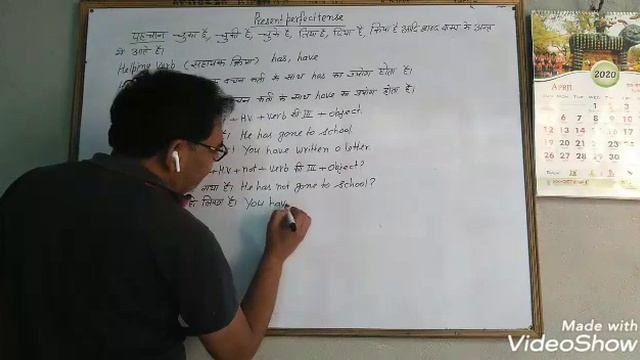 Present perfect tense
पहचान - चुका है, - चुकी है, - चुके है, लिया है, दिया है, किया है आदि शब्द वाक्य के अन्त
में आते है।
Helping verb (सहायक क्रिया) has, have
वचन कर्ता के साथ has का प्रयोग होता है।
वचन कर्ता के साथ have का प्रयोग होता है।
+ HV + verb की III + object.
He has gone to school
You have written a letter.
+ HV + not + verb की III + object?
गया है। He has not gone to school?
लिखा है। You hav
2020
APRIL
Made with
VideoShow